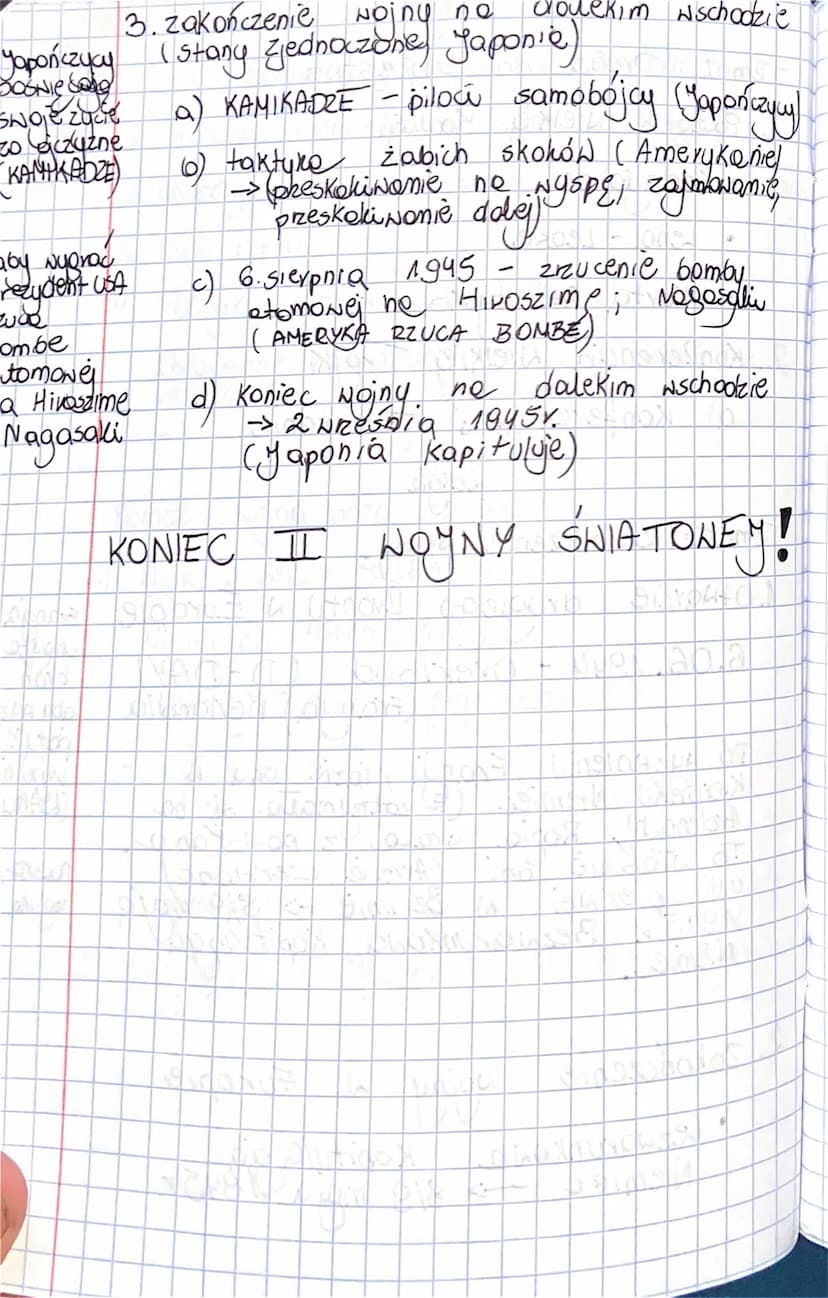 3. zakończenie wojny na dalekim wschodzie
(stany zjednoczone, Japonia)
a) KAMIKADZE - piloci samobójcy (Japończycy)
b) taktyka żabich skoków (Amerykanie)
→ (przeskokiwanie na wyspę, zajmowanie,
przeskokiwanie dalej)
c) 6. sierpnia 1945 - zrzucenie bomby
atomowej na Hiroszimę i Nagasaki
(AMERYKA RZUCA BOMBĘ)
d) koniec wojny na dalekim wschodzie
→ 2 września 1945r.
(Japonia kapituluje)
KONIEC II WOJNY ŚWIATOWEJ!
Japończycy
swoje życie
za ojczyznę
KAMIKADZE)
aby wygrać
rezydent USA
ombę
tomowej
a Hiroszimę
Nagasaki